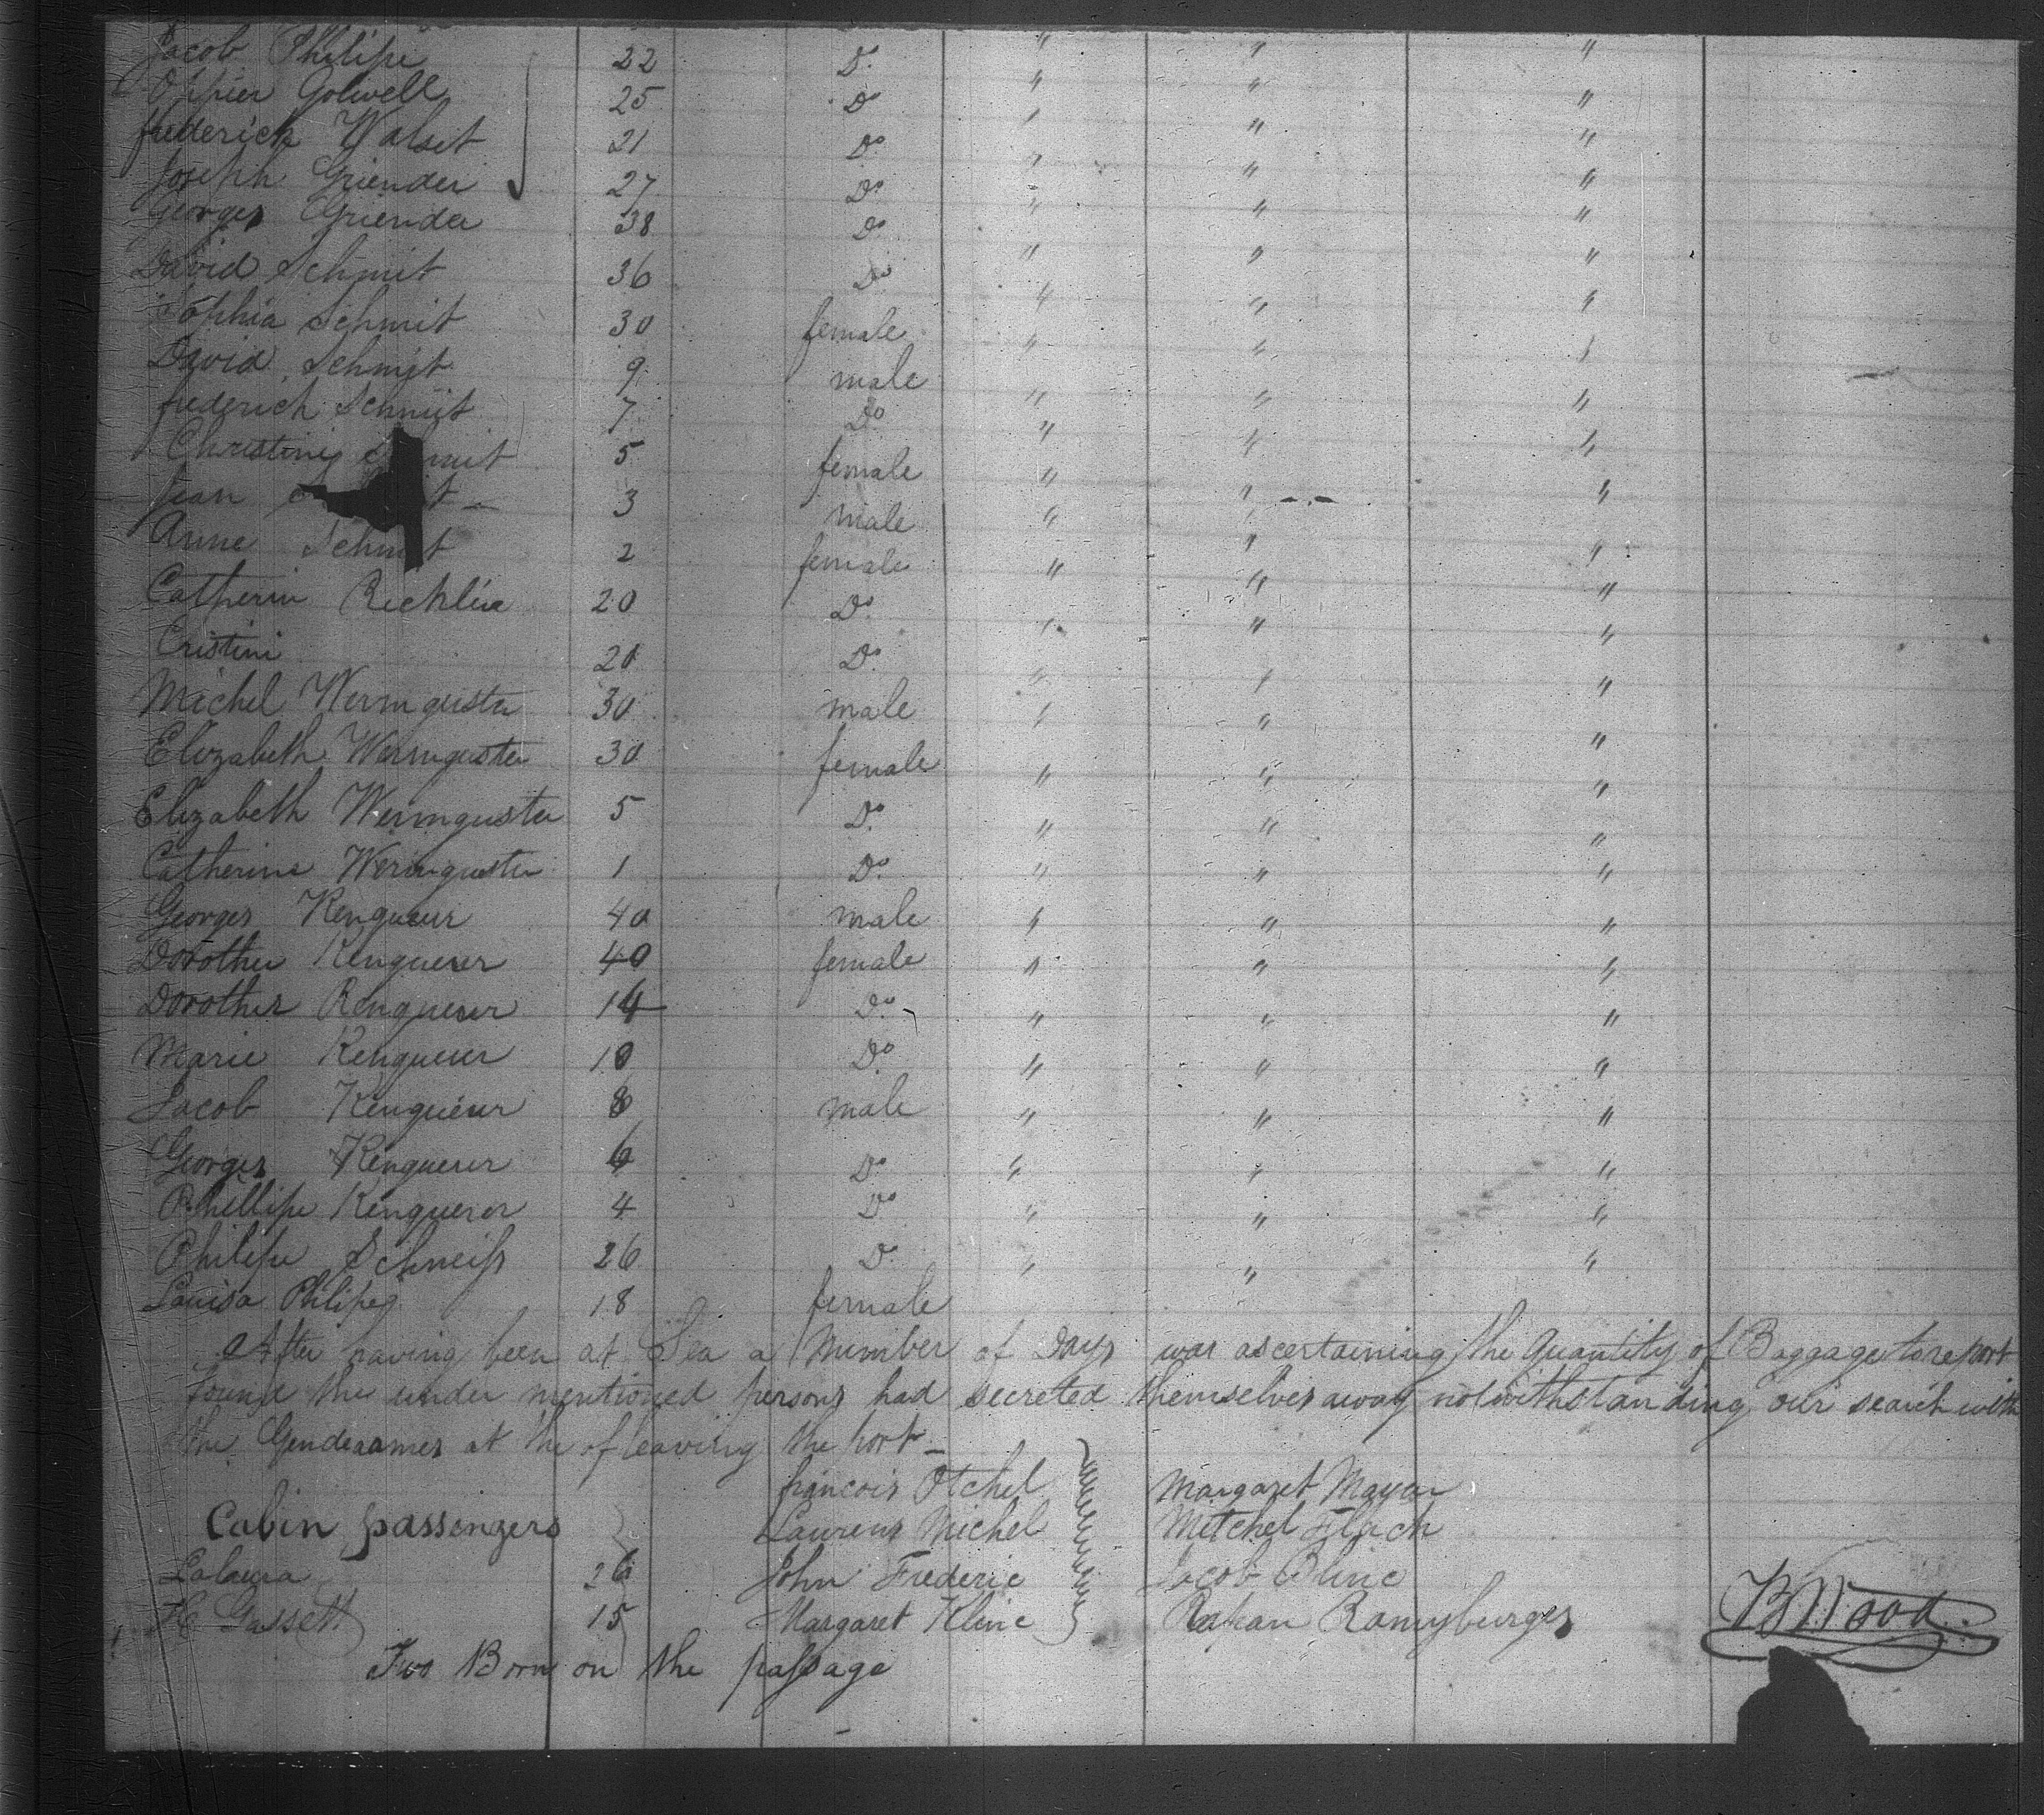 Jacob Philipe 22 Do " " "
Oppier Golwell 25 Do " " "
frederich Walsit 21 Do " " "
Joseph Griender 27 Do " " "
Georges Griender 38 Do " " "
David Schmit 36 Do " " "
Sophia Schmit 30 female " " "
David Schmit 9 male " " "
frederich Schmit 7 Do " " "
Christini mit 5 female " " "
Jean t 3 male " " "
Anne Schmit 2 female " " "
Catherin Richlin 20 Do " " "
Cristini 20 Do " " "
Michel Wermguster 30 male " " "
Elizabeth Wermguster 30 female " " "
Elizabeth Wermguster 5 Do " " "
Catherine Wermguster 1 Do " " "
Georges Kenqueur 40 male " " "
Dorothee Kenquerer 40 female " " "
Dorothee Renqueur 14 Do " " "
Marie Kenqueur 10 Do " " "
Jacob Kenqueur 8 male " " "
Georges Kenquerer 6 Do " " "
Phillipe Kenquerer 4 Do " " "
Philipe Schneiss 26 Do " " "
Louisa Philipe 18 female
After having been at Sea a Number of Days was ascertaining the Quantity of Baggage to report
found the under mentioned persons had secreted themselves away notwithstanding our search with
the Genderames at the of leaving the port
francois Otchel Margaret Mayer
Cabin passengers Laurens Michel Mitchel Flach
Lalaura 26 John Frederic Jacob Cline
H Gassett 15 Margaret Kline Ramyburges
Two Born on the passage
B Wood